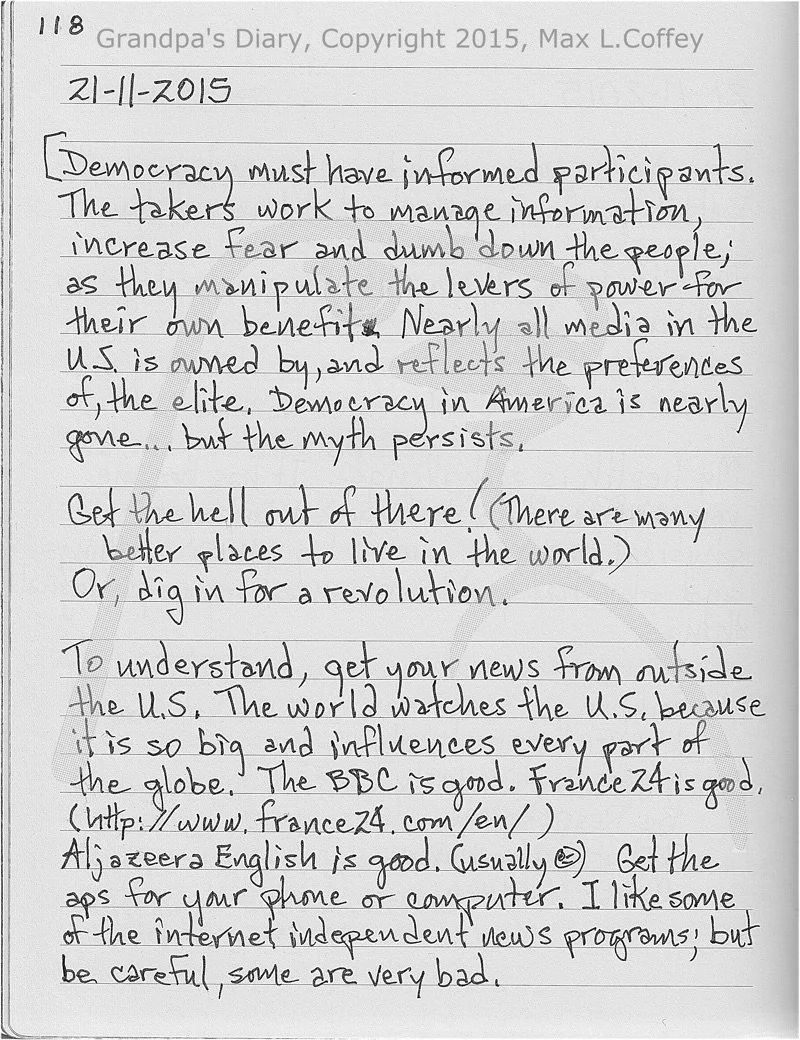 118
Grandpa's Diary, Copyright 2015, Max L.Coffey
21-11-2015
[Democracy must have informed participants.
The takers work to manage information,
increase fear and dumb down the people;
as they manipulate the levers of power for
their own benefit. Nearly all media in the
U.S. is owned by, and reflects the preferences
of, the elite. Democracy in America is nearly
gone... but the myth persists.
Get the hell out of there! (There are many
better places to live in the world.)
Or, dig in for a revolution.
To understand, get your news from outside
the U.S. The world watches the U.S. because
it is so big and influences every part of
the globe. The BBC is good. France 24 is good.
(http://www.france24.com/en/)
Aljazeera English is good. (usually) Get the
aps for your phone or computer. I like some
of the internet independent news programs; but
be careful, some are very bad.